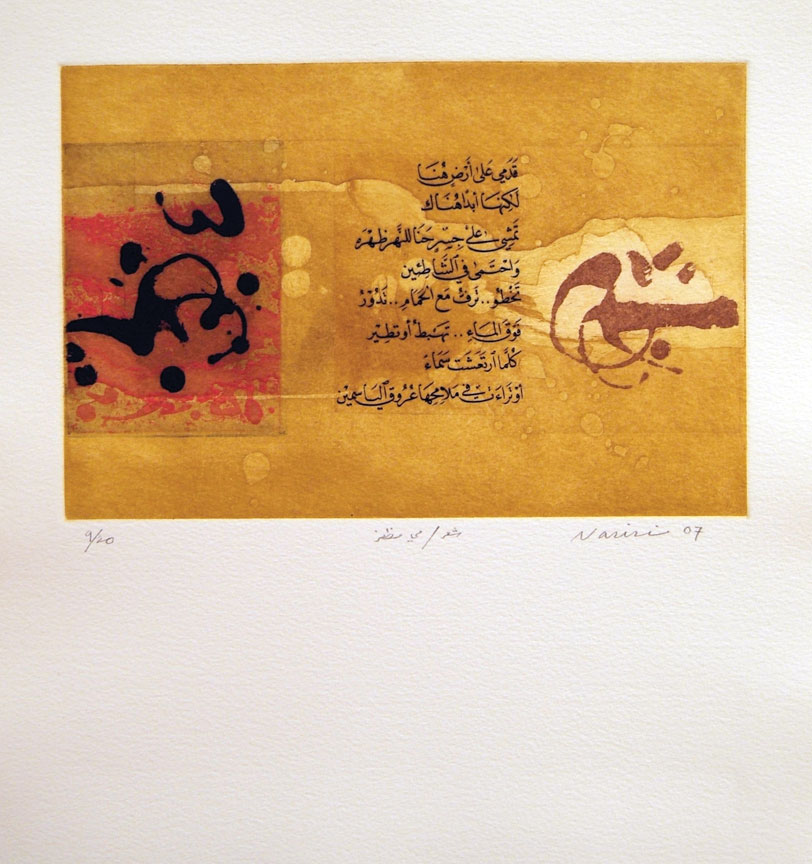 قَدَمِي عَلَى أَرْضٍ هُنَا
لَكِنَّهَا أَبَدًا هُنَاكَ
تَمْشِي عَلَى جِسْرٍ حَنَا لِلنَّهْرِ ظَهْرَهُ
وَاحْتَمَى فِي الشَّاطِئَيْنِ
تَخْطُو.. تَرِفُّ مَعَ الْحَمَامِ.. تَدُورُ
فَوْقَ الْمَاءِ.. تَهْبِطُ أَوْ تَطِيرُ
كُلَّمَا ارْتَعَشَتْ سَمَاءٌ
أَوْ تَرَاءَتْ فِي مَلَامِحِهَا عُرُوقُ الْيَاسَمِينْ
9/20
شعر / مي مظفر
Nariri 07